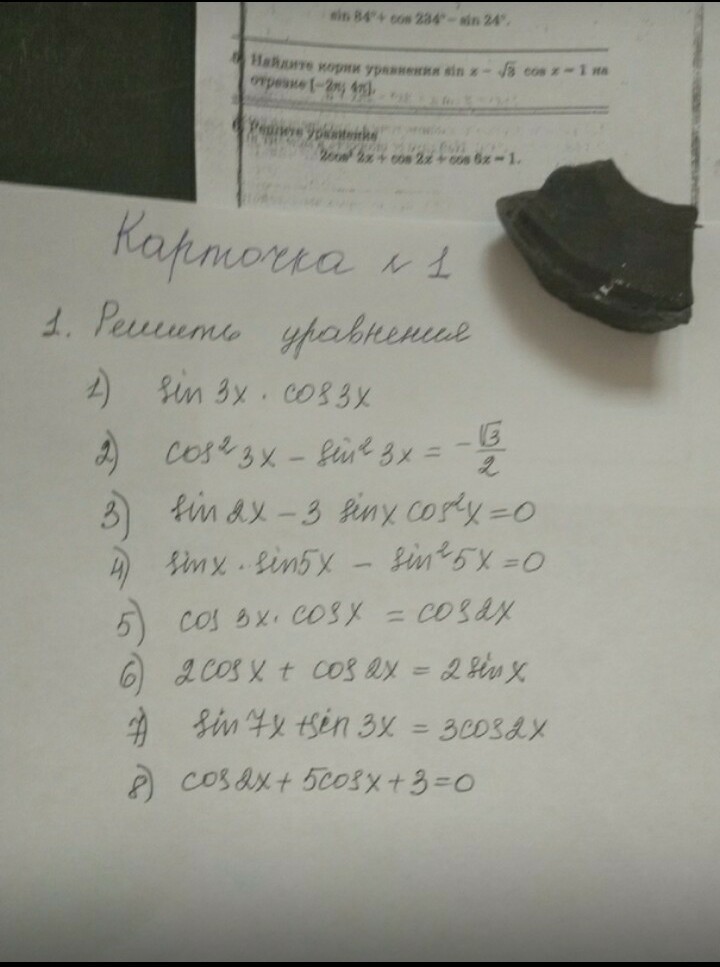 sin 84° + cos 234° − sin 24°.
Найдите корни уравнения sin x − √3 cos x = 1 на
отрезке [−2π; 4π].
6 Решите уравнение
2cos² 2x + cos 2x + cos 6x = 1.
Карточка N 1
1. Решить уравнения
1) sin 3x · cos 3x
2) cos² 3x − sin² 3x = −√3/2
3) sin 2x − 3 sin x cos² x = 0
4) sin x · sin 5x − sin² 5x = 0
5) cos 3x · cos x = cos 2x
6) 2 cos x + cos 2x = 2 sin x
7) sin 7x + sin 3x = 3 cos 2x
8) cos 2x + 5 cos x + 3 = 0